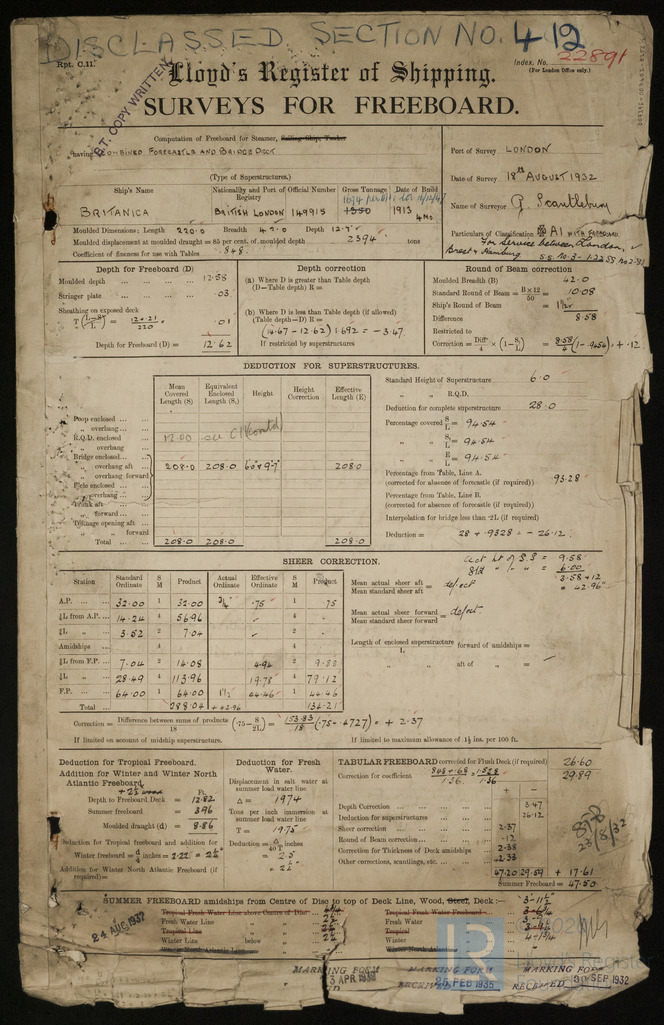 DISCLASSED SECTION NO. 412
Rpt. C.11.
Index. No. 22891
(For London Office only.)
B.T. COPY WRITTEN
Lloyd's Register of Shipping.
SURVEYS FOR FREEBOARD.
Computation of Freeboard for Steamer, Sailing Ship, Tanker
having COMBINED FORECASTLE AND BRIDGE DECK
(Type of Superstructures.)
Port of Survey LONDON
Date of Survey 18th AUGUST 1932
Name of Surveyor G. Scantlebury
Particulars of Classification A1 WITH FREEBOARD.
For Service between London,
Brest & Hamburg
Ship's Name
Nationality and Port of Registry
Official Number
Gross Tonnage
Date of Build
BRITANICA
BRITISH LONDON
149915
1350
1913
4 Mo.
Moulded Dimensions: Length 220.0 Breadth 42.0 Depth 12.7
Moulded displacement at moulded draught = 85 per cent. of moulded depth 2394 tons
Coefficient of fineness for use with Tables .848
Depth for Freeboard (D)
Moulded depth 12.58
Stringer plate .03
Sheathing on exposed deck
.01
Depth for Freeboard (D) = 12.62
Depth correction
(a) Where D is greater than Table depth
(D—Table depth) R =
(b) Where D is less than Table depth (if allowed)
(Table depth—D) R =
(14.67 - 12.62) 1.692 = - 3.47
If restricted by superstructures
Round of Beam correction
Moulded Breadth (B) 42.0
Standard Round of Beam = B×12/50 = 10.08
Ship's Round of Beam =
Difference 8.58
Restricted to
Correction = Diff/4 × (1 - S1/L) = 8.58/4 (1-.9454) = + .12
DEDUCTION FOR SUPERSTRUCTURES.
Mean Covered Length (S)
Equivalent Enclosed Length (S1)
Height
Height Correction
Effective Length (E)
Poop enclosed
" overhang
R.Q.D. enclosed
" overhang
Bridge enclosed
" overhang aft 208.0 208.0 208.0
" overhang forward
F'cle enclosed
" overhang
Trunk aft
" forward
Tonnage opening aft
" " forward
Total 208.0 208.0 208.0
Standard Height of Superstructure 6.0
" " R.Q.D.
Deduction for complete superstructure 28.0
Percentage covered S/L = 94.54
" S1/L = 94.54
" E/L = 94.54
Percentage from Table, Line A.
(corrected for absence of forecastle (if required)) 93.28
Percentage from Table, Line B.
(corrected for absence of forecastle (if required))
Interpolation for bridge less than .2L (if required)
Deduction = 28 × .9328 = - 26.12
SHEER CORRECTION.
Station
Standard Ordinate
S M
Product
Actual Ordinate
Effective Ordinate
S M
Product
A.P. 32.00 1 32.00 3/4 .75 1 .75
⅙L from A.P. 14.24 4 56.96 4
⅓L " 3.52 2 7.04 2
Amidships 4 4
⅓L from F.P. 7.04 2 14.08 4.94 2 9.88
⅙L " 28.49 4 113.96 19.78 4 79.12
F.P. 64.00 1 64.00 44.46 1 44.46
Total 288.04 + 42.96 134.21
Mean actual sheer aft
Mean standard sheer aft = defect
Mean actual sheer forward
Mean standard sheer forward = defect.
Length of enclosed superstructure forward of amidships =
L
" " aft of " =
9.58
6.00
3.58 × 12
= 42.96"
Correction = Difference between sums of products/18 (.75 - S/2L) = 153.83/18 (.75 - .4727) = + 2.37
If limited on account of midship superstructure.
If limited to maximum allowance of 1½ ins. per 100 ft.
Deduction for Tropical Freeboard.
Addition for Winter and Winter North
Atlantic Freeboard
Ft.
Depth to Freeboard Deck = 12.82
Summer freeboard = 3.96
Moulded draught (d) = 8.86
Deduction for Tropical freeboard and addition for
Winter freeboard = d/4 inches = 2.22 = 2¼"
Addition for Winter North Atlantic Freeboard (if
required) =
Deduction for Fresh
Water.
Displacement in salt water at
summer load water line
Δ = 1974
Tons per inch immersion at
summer load water line
T = 19.75
Deduction = Δ/40T inches
= 2.5
= 2½"
TABULAR FREEBOARD corrected for Flush Deck (if required) 26.60
Correction for coefficient .848 + .68/1.36 = 1.528/1.36 29.89
+ -
Depth Correction 3.47
Deduction for superstructures 26.12
Sheer correction 2.37
Round of Beam correction .12
Correction for Thickness of Deck amidships 2.38
Other corrections, scantlings, etc. 42.33
47.20 29.59 + 17.61
Summer Freeboard = 47.50
23/8/32
SUMMER FREEBOARD amidships from Centre of Disc to top of Deck Line, Wood, Steel, Deck:—
3-11½"
Tropical Fresh Water Line above Centre of Disc
Fresh Water Line "
Tropical Line "
Winter Line below "
Winter North Atlantic Line "
Tropical Fresh Water Freeboard
Fresh Water "
Tropical "
Winter "
Winter North Atlantic "
24 AUG 1932
MARKING FORM
3 APR
MARKING FORM
RECEIVED 25 FEB 1935
MARKING FORM
RECEIVED 30 SEP 1932
LR
Lloyd's Register